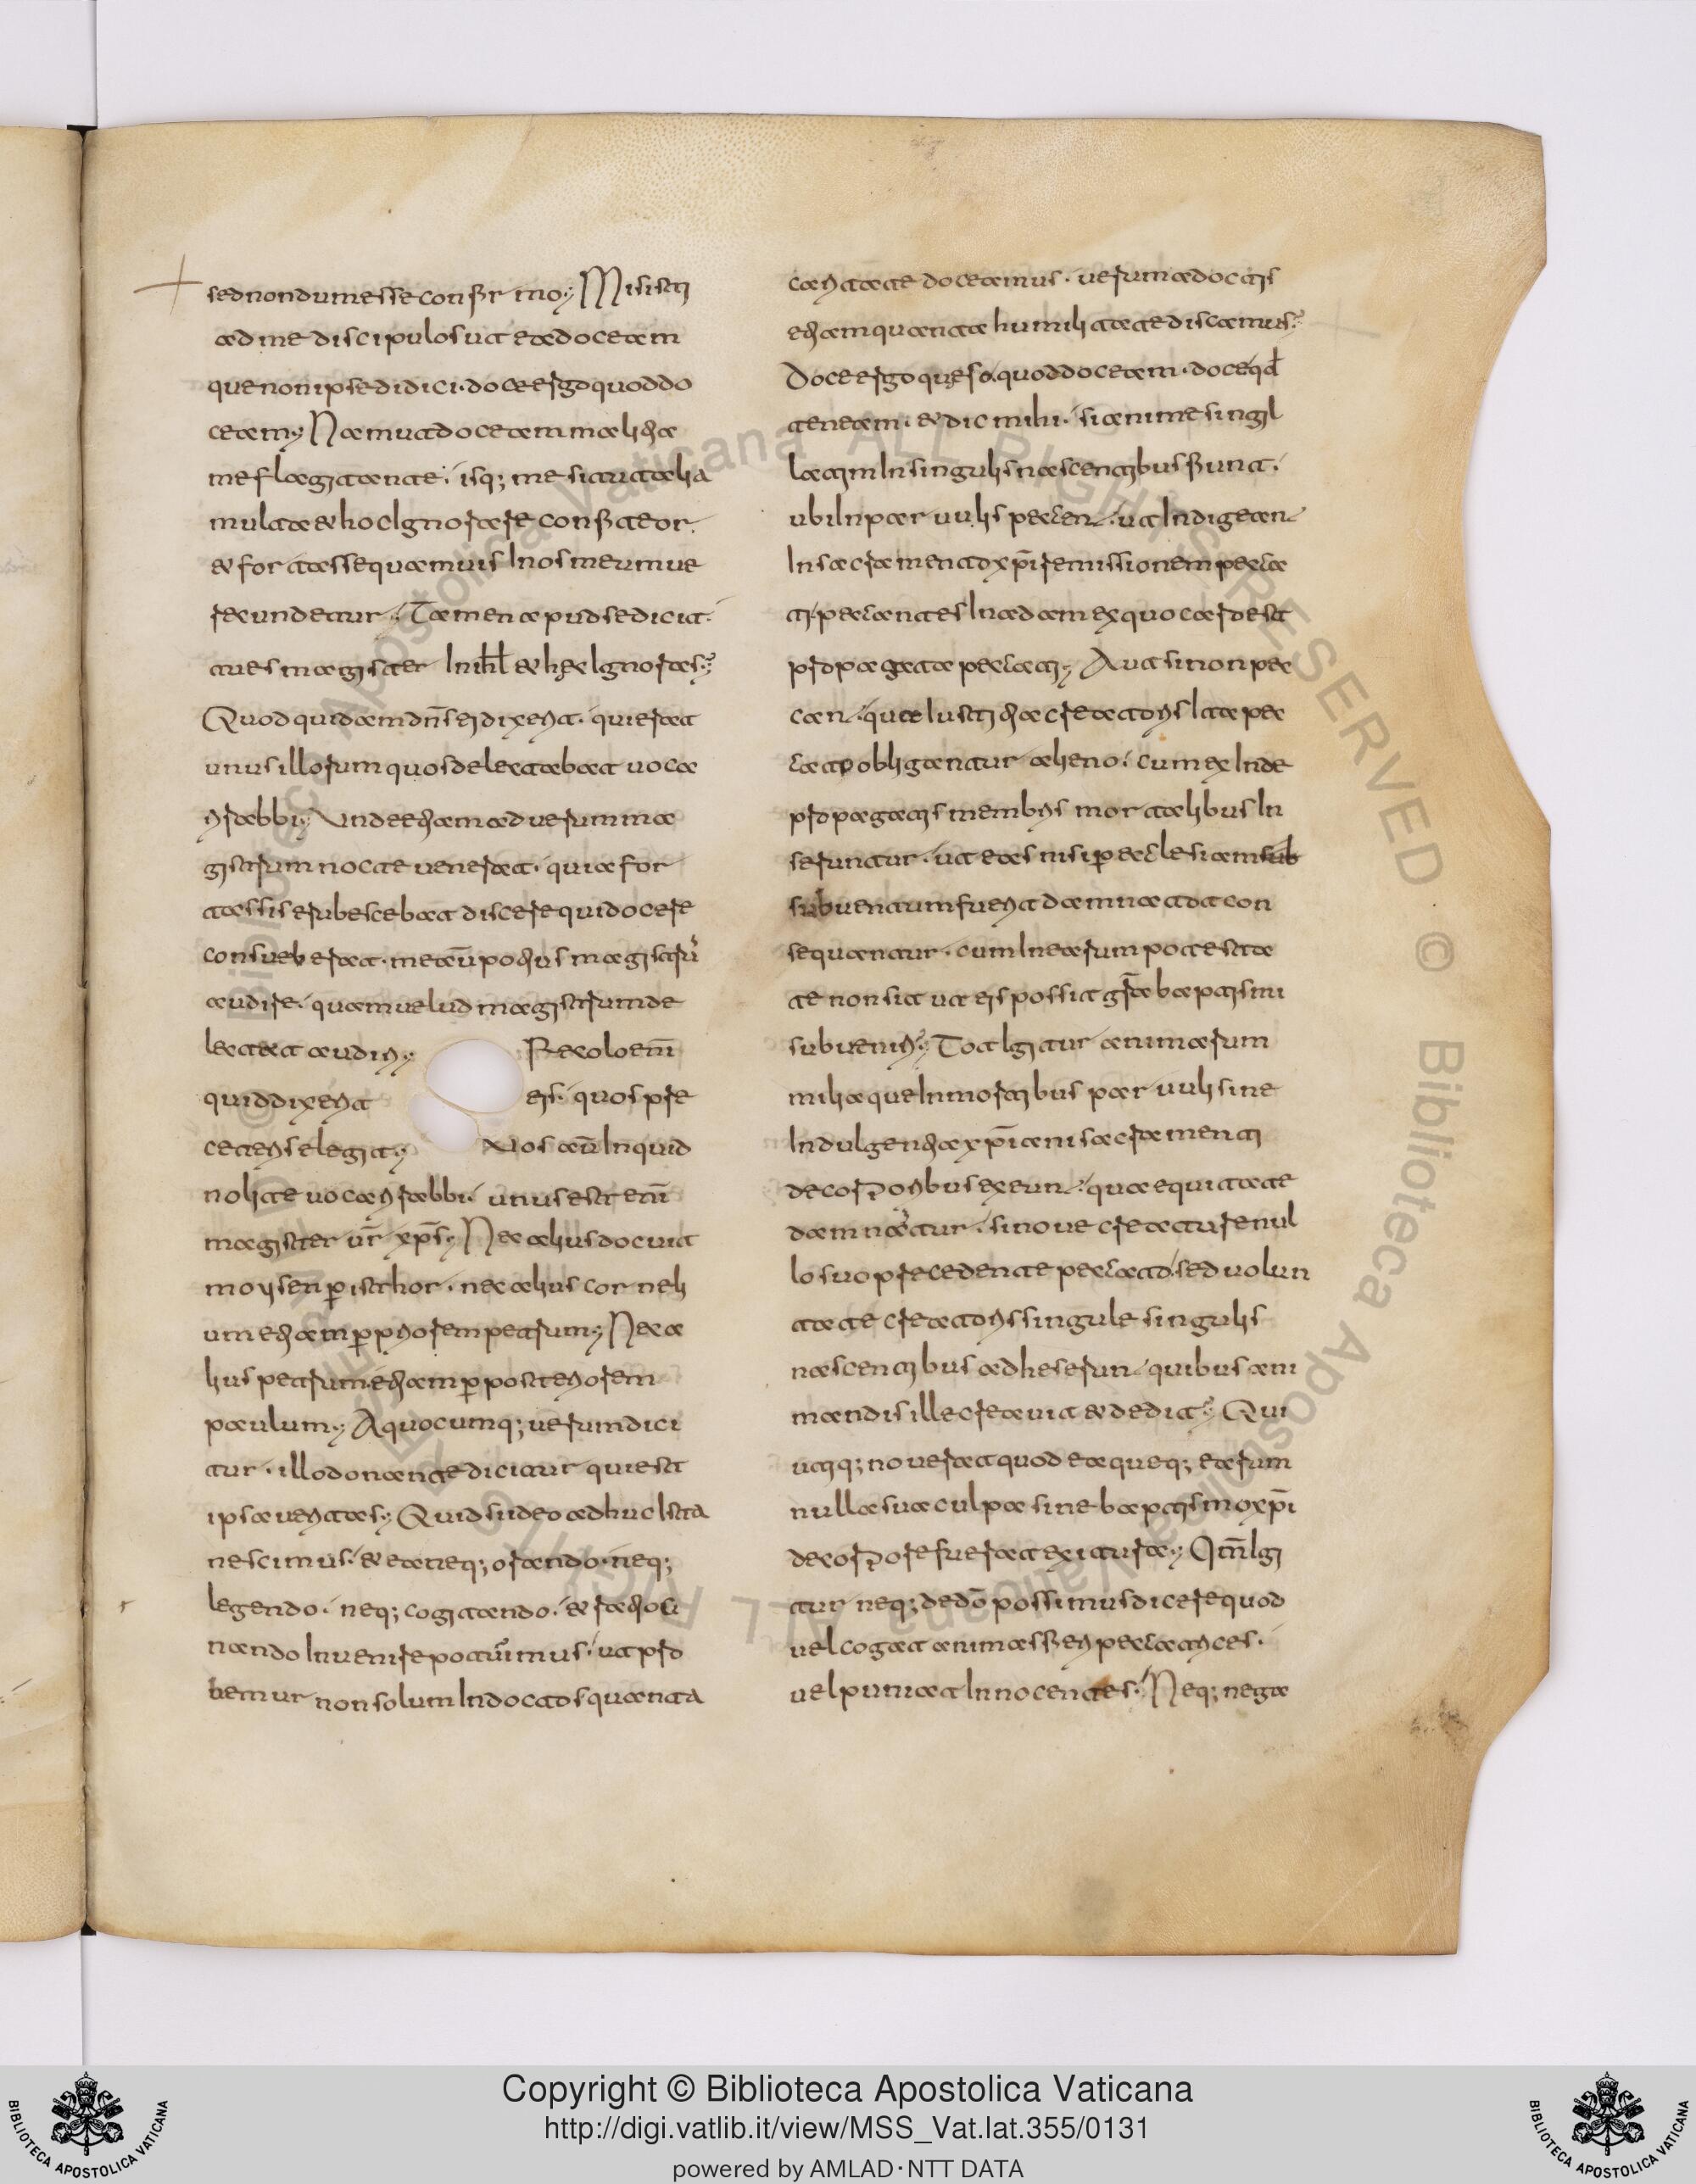 sed nondum esse confirmo; Misisti
ad me discipulos ut ea doceam
que non ipse didici. doce ergo quod do
ceam; Nam ut doceam multi a
me flagitante. isq; me sicut alia
multa & hoc Ignorare confiteor.
& fortasse quamuis In os meum ue
recundetur. Tamen apud se dicit.
tu es magister In ihl & hec Ignoras;
Quod quidam dns ei dixerit. qui erat
unus illorum quos delectabat uoca
ri rabbi; Unde etiam ad uerum ma
gistrum nocte uenerat. quia for
tassis erubescebat discere qui docere
consueberat. me aū potius magistrū
audire. quam uelud magistrum de
lectat audiri; Recolo enī
quid dixerit eis. quos pre
ceteris elegit; Uos aū Inquid
nolite uocari rabbi. unus est enī
magister ūr xp̄s; Nec alius docuit
moysen p̄ isthor. nec alius corneli
um etiam p̄ priorem petrum; Nec a
lius petrum etiam p̄ posteriorem
paulum; A quocumq; uerum dici
tur. illo donante dicitur qui est
ipsa ueritas; Quid si ideo adhuc Ista
nescimus. & ea neq; orando. neq;
legendo. neq; cogitando. & ratioci
nando Inuenire potuimus. ut pro
bemur non solum Indoctos quanta
caritate doceamus. uerum a doctis
etiam quanta humilitate discamus;
Doce ergo queso. quod doceam. doce qd
teneam. & dic mihi. si anime singil
latim In singulis nascentibus fiunt.
ubi In paruulis peccen. ut Indigean
In sacramento xp̄i remissionem pecca
ti. peccantes In adam ex quo caro est
propagata peccati; Aut si non pec
can. qua Iustitia creatoris Ita pec
cato obligantur alieno. cum ex Inde
propagatis membris mortalibus In
seruntur. ut eas nisi p̄ ecclesiam sub
subuentum fuerit damnatio con
sequantur. cum In earum potesta
te non sit ut eis possit gra baptismi
subueniri; Tot Igitur animarum
milia que In mortibus paruulis sine
Indulgentia xp̄iani sacramenti
de corporibus exeun. qua equitate
damnatur. si noue creature nul
lo suo precedente peccato. sed uolun
tate creatoris singule singulis
nascentibus adheserun quibus ani
mandis ille creauit & dedit; Qui
utiq; nouerat quod ea queq; earum
nulla sua culpa sine baptismo xp̄i
de corpore fuerat exitura; Qnm Igi
tur neq; de dō possimus dicere quod
uel cogat animas fieri peccatrices.
uel puniat Innocentes. Neq; nega
Copyright © Biblioteca Apostolica Vaticana
http://digi.vatlib.it/view/MSS_Vat.lat.355/0131
powered by AMLAD·NTT DATA